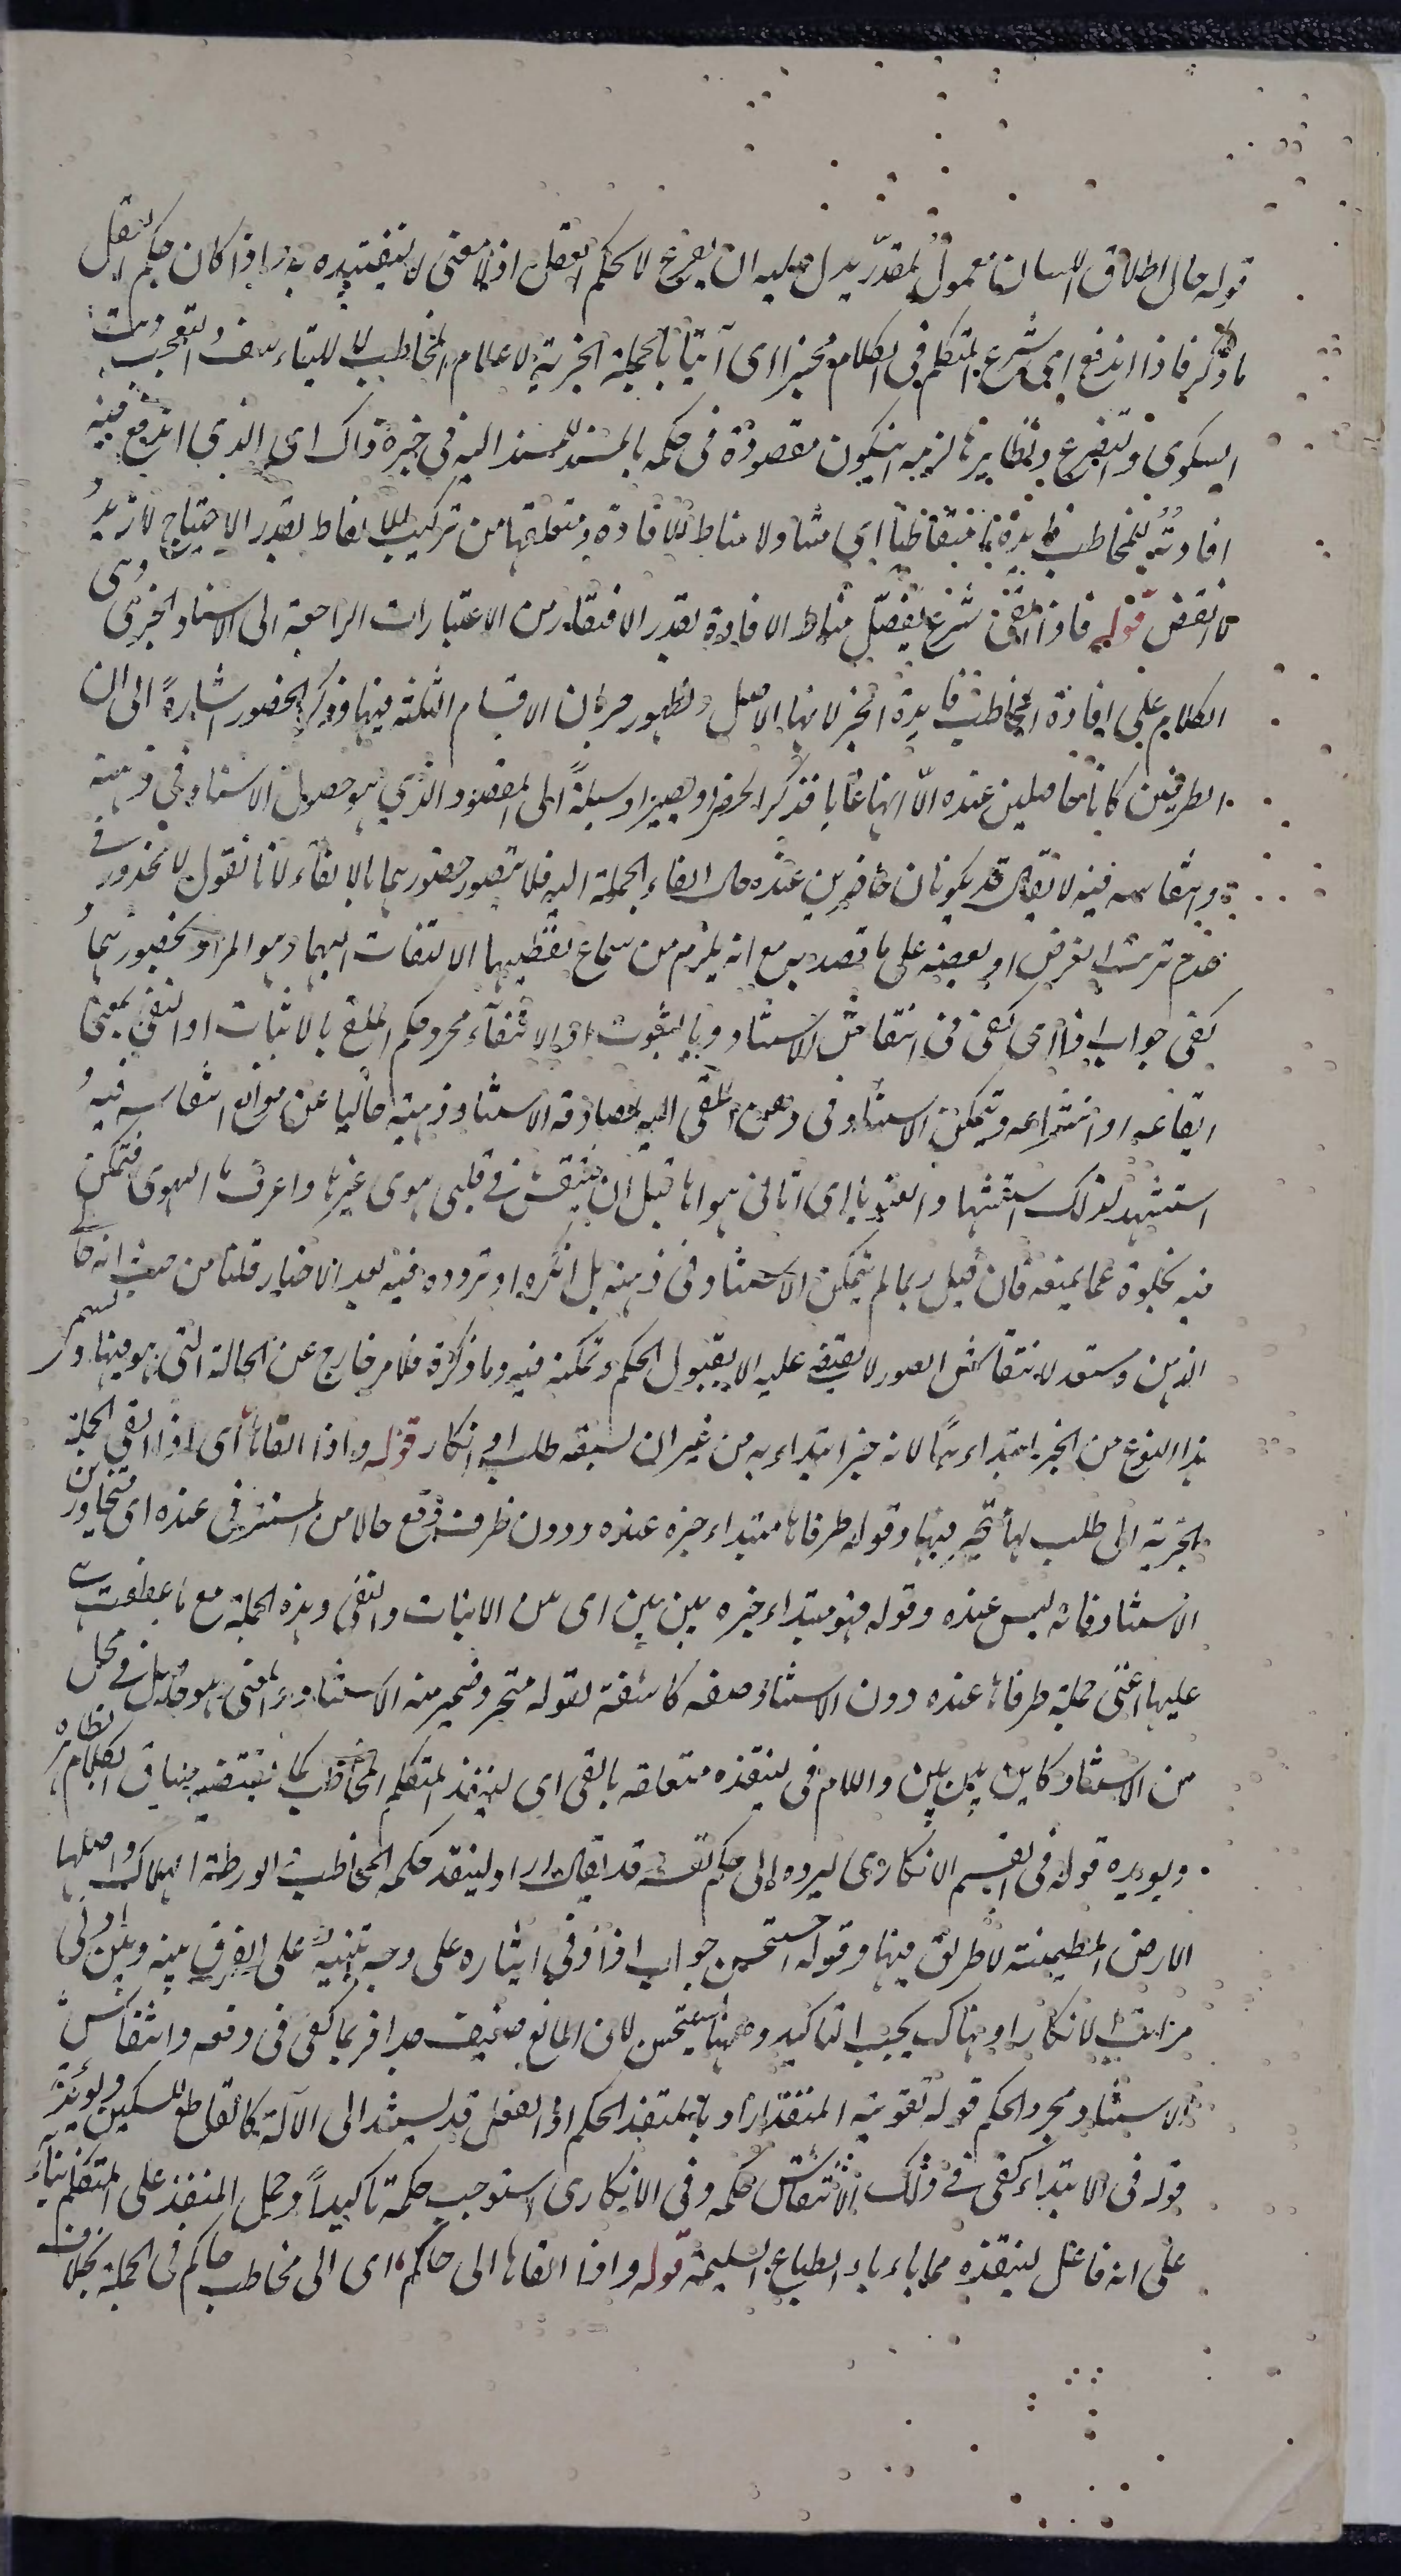 قوله حال اطلاق اللسان معمول لمقدر يدل عليه ان يفرغ لا لحكم العقل اذ لا معنى لتقييده به اذا كان حكم العقل
ما ذكر فاذا اندفع اي شرع المتكلم في الكلام مخبرا اي آتيا بالجملة الخبرية لاعلام المخاطب لا للتاسف والتعجب وبث
الشكوى والتضرع ونظايرها لزمه ان يكون مقصوده في حكمه بالمسند للمسند اليه في خبره ذاك اي الذي اندفع فيه
افادته للمخاطب فايدة ما متعاطيا اي متناولا مناط للافادة ومتعلقها من تركيب الالفاظ بقدر الاحتياج لا ازيد
ولا انقص قوله فاذا القى شرع يفصل مناط الافادة بقدر الافتقار من الاعتبارات الراجعة الى الاسناد الخبري وبنى
الكلام على افادة المخاطب فايدة الخبر لانها الاصل ولظهور جريان الاقسام الثلثة فيها وذكر الحضور اشارة الى ان
الطرفين كانا حاصلين عنده الا انهما غابا فذكرا ليحضرا ويصيرا وسيلة الى المقصود الذي هو حصول الاسناد في ذهنه
وانتقاشه فيه لا يقال قد يكونان حاضرين عنده حال القاء الجملة اليه فلا يتصور حضورهما بالالقاء لانا نقول لا محذور في
عدم ترتب الغرض او بعضه على ما قصد به مع انه يلزم من سماع لفظيهما الالتفات اليهما وهو المراد بحضورهما
كفى جواب اذا اي كفى في انتقاش الاسناد وبالثبوت او الانتفاء مجرد حكم الملقي بالاثبات او النفي بمعنى
ايقاعه او انتزاعه ويتمكن الاسناد في ذهن الملقى اليه لمصادفة الاسناد ذهنه خاليا عن موانع انتقاشه فيه
استشهد لذلك استشهادا والعنوبا اي اتاني هواها قبل ان ينتقش في قلبي هوى غيرها واعرف الهوى فتمكن
فيه بخلوة عما يمنعه فان قيل ربما لم يتمكن الاسناد في ذهنه بل انكره او تردد فيه بعد الاخبار قلنا من حيث انه خالي
الذهن ومستعد لانتقاش الصور لا يقتضي عليه الا بقبول الحكم وتمكنه فيه وما ذكرة فلامر خارج عن الحالة التي هو فيها ويسمى
هذا النوع من الخبر ابتداءيا لانه خبر ابتداء به من غير ان يسبقه طلب او انكار قوله واذا القاها اي اذا القى الجملة
الخبرية الى طلب لها تحير فيها وقوله طرفاها مبتداء خبره عنده ودون ظرف وقع حالا من المستتر في عنده اي متجاوزين
الاسناد فانه ليس عنده وقوله فهو مبتداء خبره بين بين اي بين الاثبات والنفي وهذه الجملة مع ما عطفت
عليها اعني جملة طرفاها عنده دون الاسناد صفة كاشفة لقوله متحير وضمير منه الاسناد والمعنى هو حاصل في محل
من الاسناد كاين بين بين واللام في لينقذه متعلقة بالقى اي لينقذ المتكلم المخاطب كما يقتضيه سياق الكلام ظاهرا
ويويده قوله في القسم الانكاري ليرده الى حكم نفسه قد يقال اراد لينقذ حكمه المخاطب الورطة الهلاك واصلها
الارض المطمئنة لا طريق فيها وقوله استحسن جواب اذا وفي ايثاره على وجب تنبيه على الفرق بينه وبين ادنى
مراتب الانكار اذ هناك يجب التاكيد وههنا يستحسن لان المانع ضعيف جدا فربما كفى في دفعه وانتقاش
الاسناد مجرد الحكم قوله تقوية المنقذ اراد بالمنقذ الحكم اذ الفعل قد يسند الى الآلة كالقاطع للسكين ويويده
قوله في الابتداء كفى في ذلك الانتقاش حكمه وفي الانكاري استوجب حكمه تاكيدا وحمل المنقذ على المتكلم بناء
على انه فاعل لينقذه مما ياباه الطباع السليمة قوله واذا القاها الى حاكم اي الى مخاطب حاكم في الجملة بخلاف